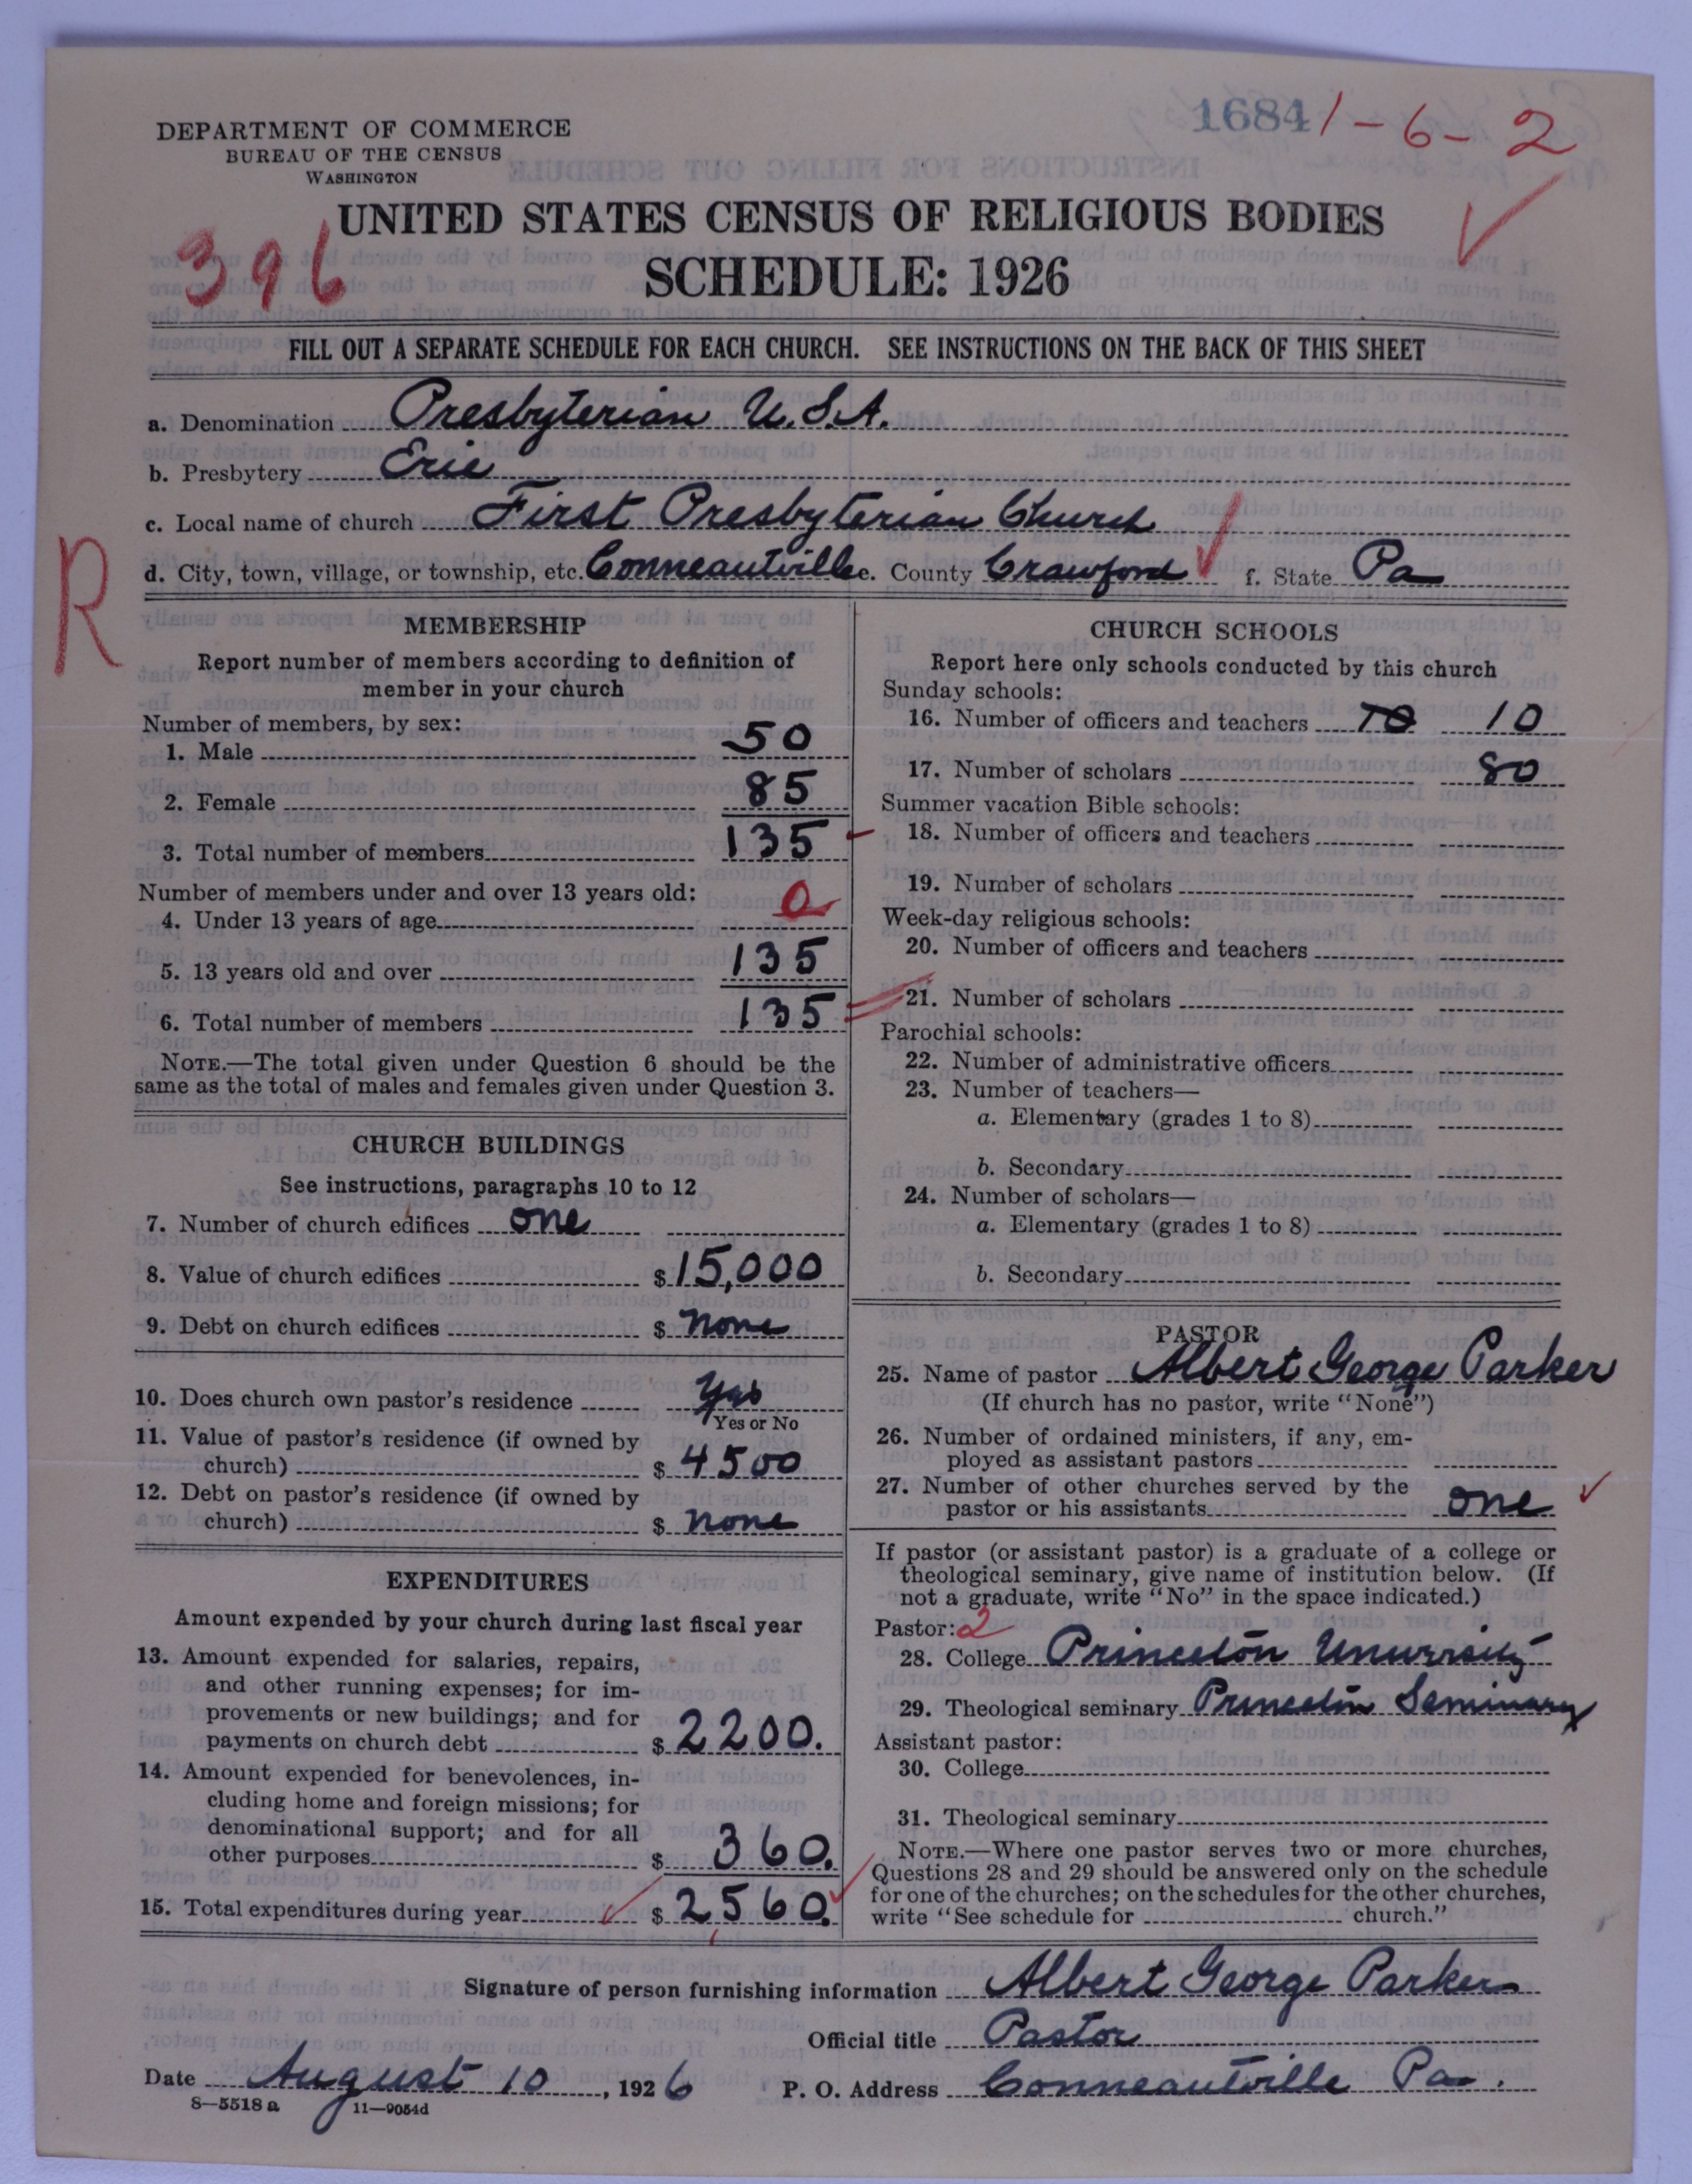 1684 1-6-2
DEPARTMENT OF COMMERCE
BUREAU OF THE CENSUS
WASHINGTON
396
UNITED STATES CENSUS OF RELIGIOUS BODIES
SCHEDULE: 1926
FILL OUT A SEPARATE SCHEDULE FOR EACH CHURCH. SEE INSTRUCTIONS ON THE BACK OF THIS SHEET
a. Denomination Presbyterian U.S.A.
b. Presbytery Erie
c. Local name of church First Presbyterian Church
R
d. City, town, village, or township, etc. Conneautville e. County Crawford f. State Pa
MEMBERSHIP
Report number of members according to definition of
member in your church
Number of members, by sex:
1. Male 50
2. Female 85
3. Total number of members 135
Number of members under and over 13 years old:
4. Under 13 years of age 0
5. 13 years old and over 135
6. Total number of members 135
NOTE.—The total given under Question 6 should be the
same as the total of males and females given under Question 3.
CHURCH BUILDINGS
See instructions, paragraphs 10 to 12
7. Number of church edifices one
8. Value of church edifices $ 15,000
9. Debt on church edifices $ none
10. Does church own pastor's residence yes
Yes or No
11. Value of pastor's residence (if owned by
church) $ 4500
12. Debt on pastor's residence (if owned by
church) $ none
EXPENDITURES
Amount expended by your church during last fiscal year
13. Amount expended for salaries, repairs,
and other running expenses; for im-
provements or new buildings; and for
payments on church debt $ 2200.
14. Amount expended for benevolences, in-
cluding home and foreign missions; for
denominational support; and for all
other purposes $ 360.
15. Total expenditures during year $ 2,560.
CHURCH SCHOOLS
Report here only schools conducted by this church
Sunday schools:
16. Number of officers and teachers 10 10
17. Number of scholars 80
Summer vacation Bible schools:
18. Number of officers and teachers
19. Number of scholars
Week-day religious schools:
20. Number of officers and teachers
21. Number of scholars
Parochial schools:
22. Number of administrative officers
23. Number of teachers—
a. Elementary (grades 1 to 8)
b. Secondary
24. Number of scholars—
a. Elementary (grades 1 to 8)
b. Secondary
PASTOR
25. Name of pastor Albert George Parker
(If church has no pastor, write "None")
26. Number of ordained ministers, if any, em-
ployed as assistant pastors
27. Number of other churches served by the
pastor or his assistants one
If pastor (or assistant pastor) is a graduate of a college or
theological seminary, give name of institution below. (If
not a graduate, write "No" in the space indicated.)
Pastor: 2
28. College Princeton University
29. Theological seminary Princeton Seminary
Assistant pastor:
30. College
31. Theological seminary
NOTE.—Where one pastor serves two or more churches,
Questions 28 and 29 should be answered only on the schedule
for one of the churches; on the schedules for the other churches,
write "See schedule for church."
Signature of person furnishing information Albert George Parker
Official title Pastor
Date August 10, 1926 P. O. Address Conneautville Pa.
8—5518 a 11—9054d